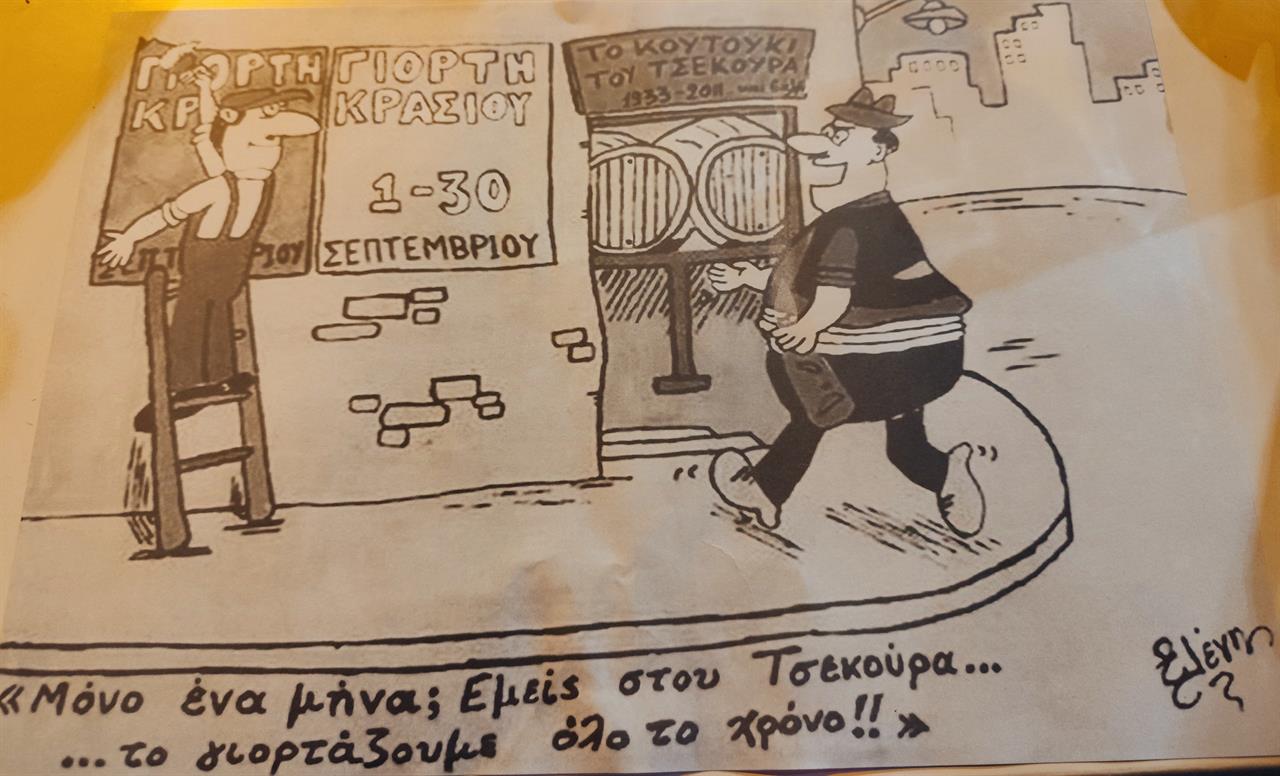 ΓΙΟΡΤΗ
ΚΡ
ΣΕΠΤ ΡΙΟΥ
ΓΙΟΡΤΗ
ΚΡΑΣΙΟΥ
1-30
ΣΕΠΤΕΜΒΡΙΟΥ
ΤΟ ΚΟΥΤΟΥΚΙ
ΤΟΥ ΤΣΕΚΟΥΡΑ
1933-2011 και
«Μόνο ένα μήνα; Εμείς στου Τσεκούρα...
...το γιορτάζουμε όλο το χρόνο!!»
Ελένη